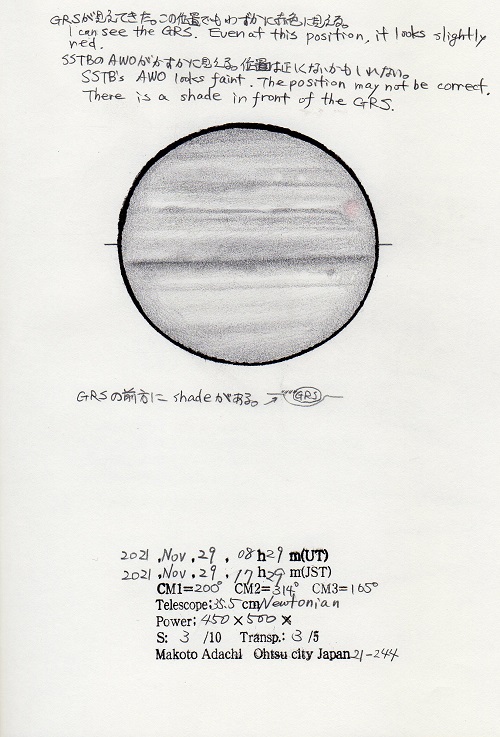 GRSが見えてきた。この位置でもわずかに赤色に見える。
I can see the GRS. Even at this position, it looks slightly
red.
SSTBのAWOがかすかに見える。位置は正しくないかもしれない。
SSTB's AWO looks faint. The position may not be correct.
There is a shade in front of the GRS.
GRSの前方に shadeがある。→ GRS
2021 . Nov . 29 . 08 h 29 m(UT)
2021 . Nov . 29 . 17 h 29 m(JST)
CM1=200° CM2=314° CM3=165°
Telescope; 35.5 cm Newtonian
Power; 450 × 500 ×
S: 3 /10 Transp.: 3 /5
Makoto Adachi Ohtsu city Japan 21-244